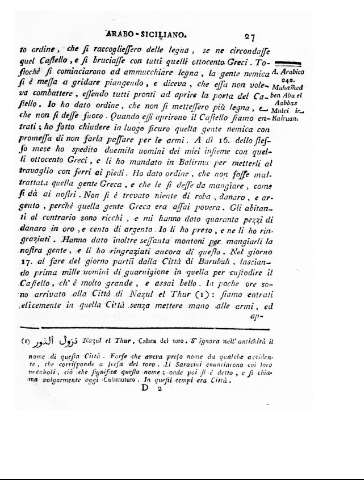 ARABO-SICILIANO. 27
to ordine, che si raccogliessero delle legna, se ne circondasse
quel Castello, e si bruciasse con tutti quelli ottocento Greci. To-
stochè si cominciarono ad ammucchiare legna, la gente nemica
si è messa a gridare piangendo, e diceva, che essi non vole-
va combattere, essendo tutti pronti ad aprire la porta del Ca-
stello. Io ho dato ordine, che non si mettessero più legna, e
che non si desse fuoco. Quando essi aprirono il Castello siamo en-
trati; ho fatto chiudere in luogo sicuro quella gente nemica con
promessa di non farla passare per le armi. A dì 16. dello stes-
so mese ho spedito duemila uomini dei miei insieme con quel-
li ottocento Greci, e li ho mandato in Balirmu per metterli al
travaglio con ferri ai piedi. Ho dato ordine, che non fosse mal-
trattata quella gente Greca, e che le si desse da mangiare, come
si dà ai nostri. Non si è trovato niente di roba, danaro, e ar-
gento, perchè quella gente Greca era assai povera. Gli abitan-
ti al contrario sono ricchi, e mi hanno dato quaranta pezzi di
danaro in oro, e cento di argento. Io li ho preso, e ne li ho rin-
graziati. Hanno dato inoltre sessanta montoni per mangiarli la
nostra gente, e li ho ringraziati ancora di questo. Nel giorno
17. al fare del giorno partii dalla Città di Barubah, lascian-
do prima mille uomini di guarnigione in quella per custodire il
Castello, ch'è molto grande, e assai bello. In poche ore so-
no arrivato alla Città di Nazul el Thur (1): siamo entrati
felicemente in quella Città senza mettere mano alle armi, ed
A. Arabica
242.
Muhalhed
ben Aba el
Aabbas
Mulei in
Kairuan.
(1) نزول الثور Nazul el Thur, Calata del toro. S'ignora nell'antichità il
nome di questa Città. Forse che aveva preso nome da qualche acciden-
te, che corrisponde a scesa del toro. Li Saraceni enunciarono coi loro
vocaboli, ciò che significa questo nome; onde poi si è detto, e si chia-
ma volgarmente oggi In questi tempi era Città.
D 2